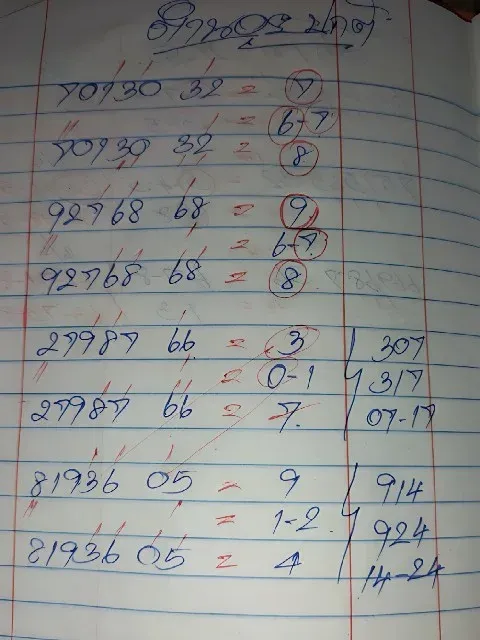 70730 32 = 7
" = 6-7
70730 32 = 8
92768 68 = 9
" = 6-7
92768 68 = 8
27987 66 = 3 307
" = 0-1 317
27987 66 = 7 07-17
81936 05 = 9 914
" = 1-2 924
81936 05 = 4 14-24